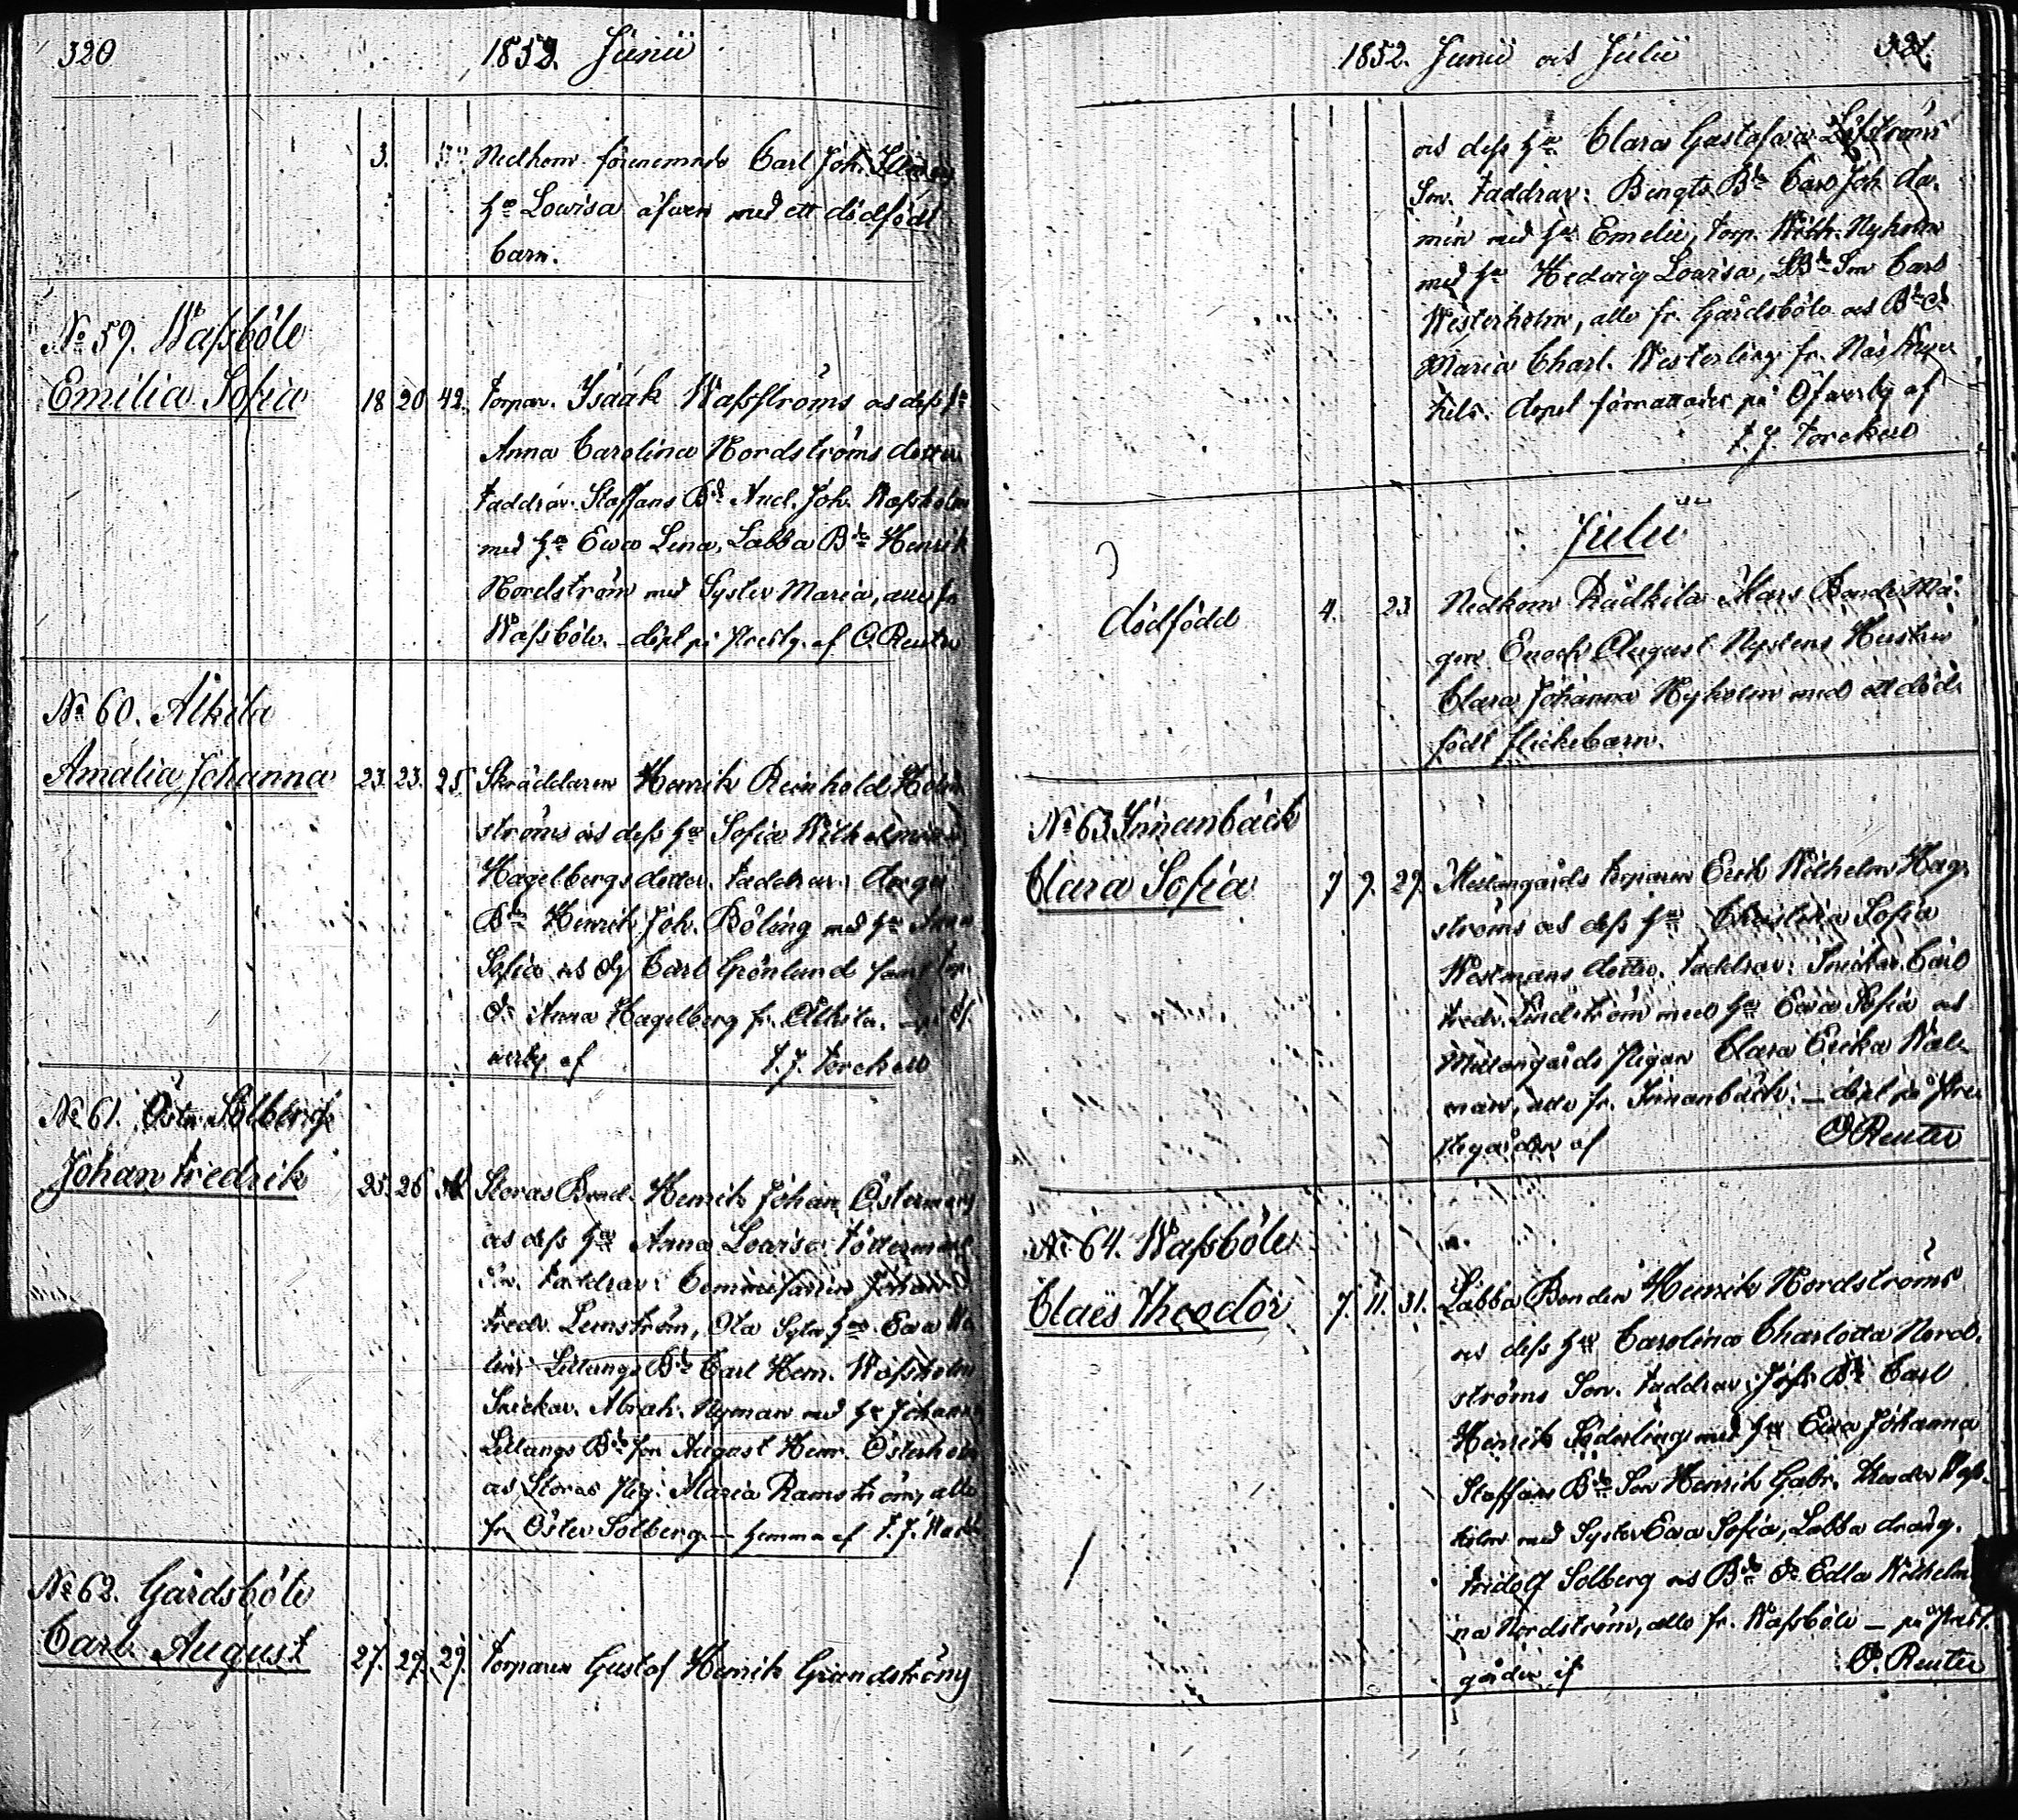 320
1852. Junii
3. Nedkom förenemnde Carl Joh.
Hu Lowisa äfwen med ett dödfödt
barn.
No 59. Wassböle
Emilia Sofia 18 20 42. Torpar. Isaak Wasströms och dess Hu
Anna Carolina Nordströms dotter
Faddrar. Staffans Bd And. Joh. Wassholm
med Hu Ewa Lena, Labba Bde Henrik
Nordström med Syster Maria, alle fr
Wassböle. - döpt på Prestg. af O. Reuter
No 60. Alkila
Amalia Johanna 23. 23. 25. Skräddaren Henrik Reinhold Holm
ströms och dess Hu Sofia Wilhelmina
Hagelbergs dotter. Faddrar:
Bde Henrik Joh. Böling med Hu Anna
Sofia och Carl Grönlund samt
Dr Anna Hagelberg fr. Alkila. - på Öf
werby af T. J. Forckell
No 61. Öster Solberg
Johan Fredrik 25. 26 Storas Bond. Henrik Johan Östermans
och dess Hu Anna Lowisa Töttermans
Son. Faddrar: Commissarien Johan
Fredr. Lemström, Hu Ewa
Lillängs Bde Carl Henr. Wassholm
Snickar. Abrah. Nyman med Hu Johanna
Lillängs Bde Son August Henr. Österholm
och Storas Pig. Maria Ramström, alle
fr Öster Solberg - hemma af T. J.
No 62. Gårdsböle
Carl August 27. 29. 29. Torparen Gustaf Henrik Grandströms
1852. Junii och Julii 321.
och dess Hu Clara Gustafwa Löfströms
Son. Faddrar: Bengts Bde Carl Joh.
med Hu Emelie, Torp. Wilh. Nyholm
med Hu Hedwig Lowisa, Bde Son Carl
Westerholm, alle fr. Gårdsböle och Bde Dr
Maria Charl. Westerling fr. Näs
Dopet förrättades på Öfwerby af
T. J. Forckell
Julii
dödfödd 4. 23 Nedkom Rådkila Mars Bonde Må
gen Enoch August Nystens Hustru
Clara Johanna Nyholm med ett död-
födt flickebarn.
No 63. Innanbäck
Clara Sofia 7 9. 29. Mellangårds Torparen Erik Wilhelm Hag-
ströms och dess Hu Christina Sofia
Westmans dotter. Faddrar: Snickar. Carl
Fredr. Lindström med Hu Ewa Sofia och
Mellangårds Pigan Clara Erika
man, alle fr. Innanbäck. - döpt på Pre
stgården af O Reuter
No 64. Wassböle
Claës Theodor 7. 11. 31. Labba Bonden Henrik Nordströms
och dess Hu Carolina Charlotta Nord-
ströms Son. Faddrar: Bde Carl
Henrik Söderling med Hu Ewa Johanna
Staffans Bde Son Henrik Gabr. Theodor Wass-
holm med Syster Ewa Sofia, Labba dräng.
Fridolf Solberg och Bde Dr Edla Wilhelmi
na Nordström, alle fr. Wassböle - på Prest-
gården af O. Reuter